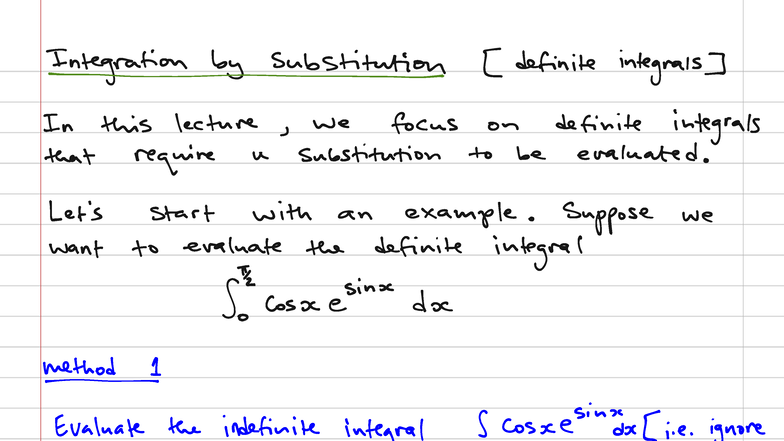 Integration by Substitution [definite integrals]
In this lecture, we focus on definite integrals
that require u substitution to be evaluated.
Let's start with an example. Suppose we
want to evaluate the definite integral
∫₀^(π/2) cosx e^(sinx) dx
method 1
Evaluate the indefinite integral ∫ cosx e^(sinx) dx [i.e. ignore